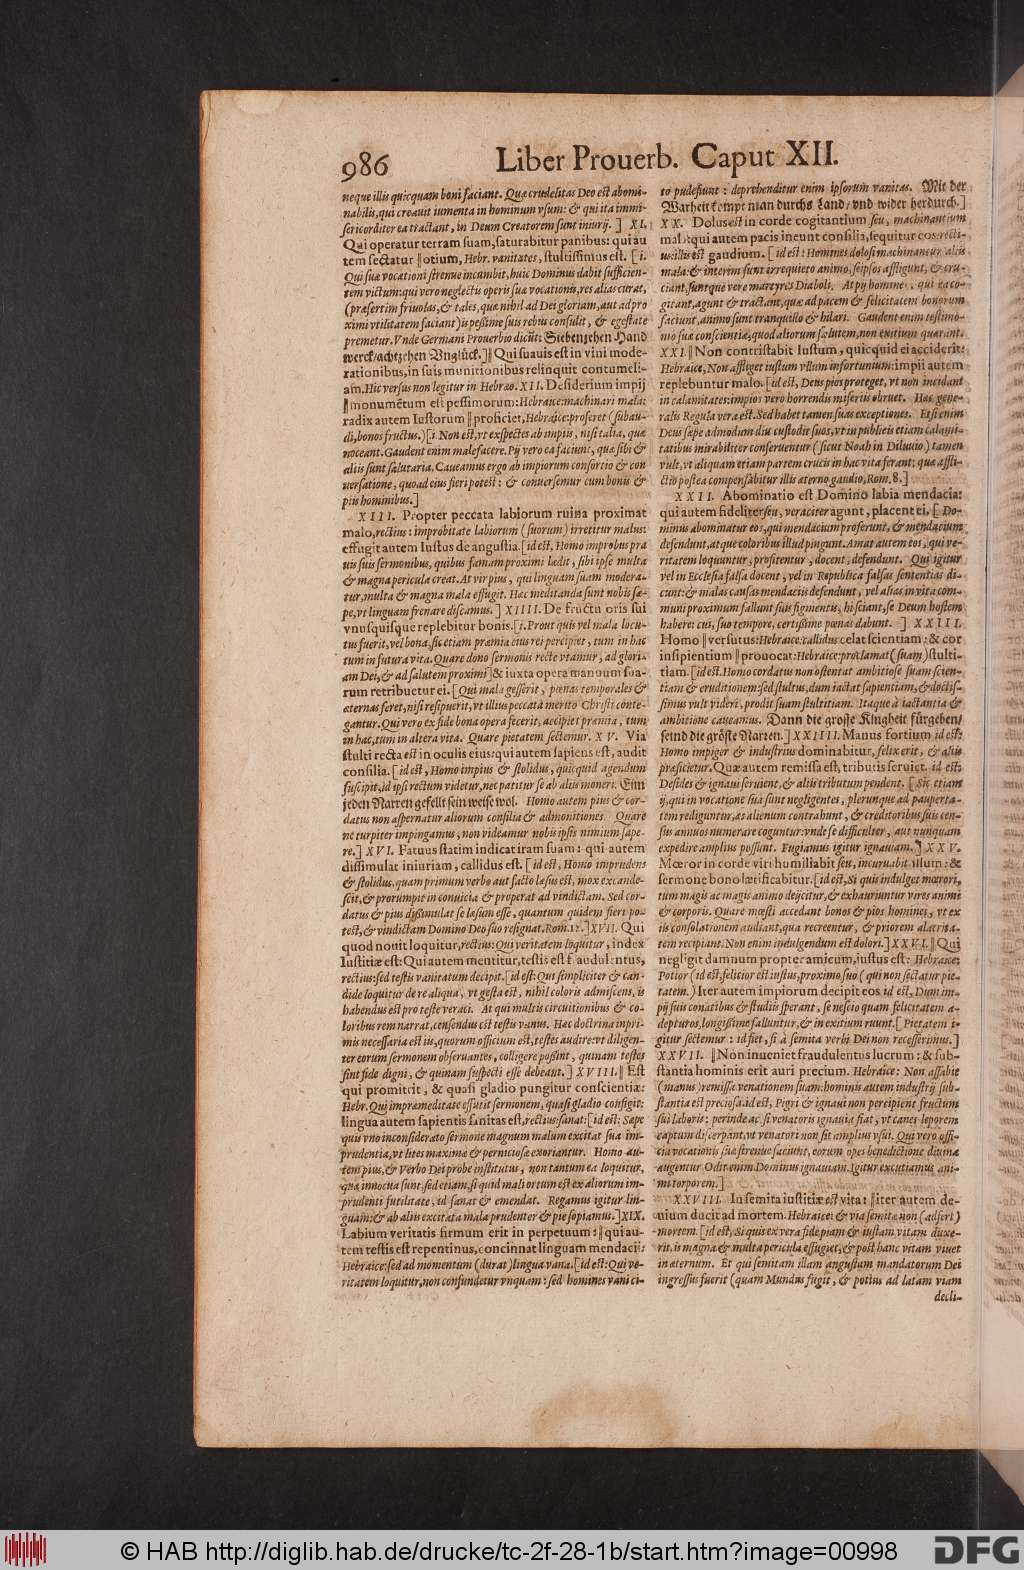 986
Liber Prouerb. Caput XII.
neque illis quicquam boni faciant. Quæ crudelitas Deo est abomi-
nabilis, qui creauit iumenta in hominum vsum: & qui ita immi-
sericorditer ea tractant, in Deum Creatorem sunt iniurij. ] XI.
Qui operatur terram suam, saturabitur panibus: qui au
tem sectatur ‖otium, Hebr. vanitates, stultissimus est. [i.
Qui suæ vocationi strenue incumbit, huic Dominus dabit sufficien-
tem victum: qui vero neglectis operis suæ vocationis, res alias curat,
(præsertim friuolas, & tales, quæ nihil ad Dei gloriam, aut ad pro
ximi vtilitatem faciant) is pessime suis rebus consulit, & egestate
premetur. Vnde Germani Prouerbio dicūt: Siebenzehen Hand
werck/achtzehen Vnglück.]‖Qui suauis est in vini mode-
rationibus, in suis munitionibus relinquit contumeli-
am. Hic versus non legitur in Hebræo. XII. Desiderium impij
‖monumētum est pessimorum: Hebraice: machinari mala:
radix autem Iustorum ‖proficiet, Hebraice: proferet (subau-
di, bonos fructus.) [i. Non est, vt exspectes ab impiis, nisi talia, quæ
noceant. Gaudent enim malefacere. Pij vero ea faciunt, quæ sibi &
aliis sunt salutaria. Caueamus ergo ab impiorum consortio & con
uersatione, quoad eius fieri potest: & conuersemur cum bonis &
piis hominibus.]
XIII. Propter peccata labiorum ruina proximat
malo, rectius: improbitate labiorum (suorum) irretitur malus:
effugit autem Iustus de angustia. [id est, Homo improbus pra
uis suis sermonibus, quibus famam proximi lædit, sibi ipse multa
& magna pericula creat. At vir pius, qui linguam suam modera-
tur, multa & magna mala effugit. Hac meditanda sunt nobis sæ-
pe, vt linguam frenare discamus.] XIIII. De fructu oris sui
vnusquisque replebitur bonis. [i. Prout quis vel mala locu-
tus fuerit, vel bona, sic etiam præmia eius rei percipiet, tum in hac
tum in futura vita. Quare dono sermonis recte vtamur, ad glori-
am Dei, & ad salutem proximi] & iuxta opera manuum sua-
rum retribuetur ei. [Qui mala gesserit, pœnas temporales &
æternas feret, nisi resipuerit, vt illius peccata merito Christi conte-
gantur. Qui vero ex fide bona opera fecerit, accipiet præmia, tum
in hac, tum in altera vita. Quare pietatem sectemur. XV. Via
stulti recta est in oculis eius: qui autem sapiens est, audit
consilia. [id est, Homo impius & stolidus, quicquid agendum
suscipit, id ipsi rectum videtur, nec patitur se ab aliis moneri. Eim
jeden Narren gefellt sein weise wol. Homo autem pius & cor-
datus non aspernatur aliorum consilia & admonitiones. Quare
ne turpiter impingamus, non videamur nobis ipsis nimium sape-
re.] XVI. Fatuus statim indicat iram suam: qui autem
dissimulat iniuriam, callidus est. [id est, Homo imprudens
& stolidus, quam primum verbo aut facto læsus est, mox excande-
scit, & prorumpit in conuicia & properat ad vindictam. Sed cor-
datus & pius dissimulat se læsum esse, quantum quidem fieri po-
test, & vindictam Domino Deo suo resignat. Rom. 12.] XVII. Qui
quod nouit loquitur, rectius: Qui veritatem loquitur, index
Iustitiæ est: Qui autem mentitur, testis est fraudulentus,
rectius: sed testis vanitatum decipit. [id est: Qui simpliciter & can-
dide loquitur de re aliqua, vt gesta est, nihil coloris admiscens, is
habendus est pro teste veraci. At qui multis circuitionibus & co-
loribus rem narrat, censendus est testis vanus. Hac doctrina inpri-
mis necessaria est iis, quorum officium est, testes audire: vt diligen-
ter eorum sermonem obseruantes, colligere possint, quinam testes
sint fide digni, & quinam suspecti esse debeant.] XVIII.‖Est
qui promittit, & quasi gladio pungitur conscientiæ:
Hebr. Qui impræmeditate effutit sermonem, quasi gladio confígit:
lingua autem sapientis sanitas est, rectius: sanat: [id est: Sæpe
quis vno inconsiderato sermone magnum malum excitat sua im-
prudentia, vt lites maximæ & perniciosæ exoriantur. Homo au-
tem pius, & Verbo Dei probe institutus, non tantum ea loquitur,
quæ innocua sunt, sed etiam, si quid mali ortum est ex aliorum im-
prudenti futilitate, id sanat & emendat. Regamus igitur lin-
guam: & ab aliis excitata mala prudenter & pie sopiamus.] XIX.
Labium veritatis firmum erit in perpetuum: ‖qui au-
tem testis est repentinus, concinnat linguam mendacii:
Hebraice: sed ad momentum (durat) lingua vana. [id est: Qui ve-
ritatem loquitur, non confundetur vnquam: sed homines vani ci-
to pudefiunt: deprehenditur enim ipsorum vanitas. Mit der
Warheit kompt man durchs Land/vnd wider herdurch.]
XX. Dolus est in corde cogitantium seu, machinantium
mala: qui autem pacis ineunt consilia, sequitur eos recti-
us: illis est gaudium. [id est: Homines dolosi machinantur aliis
mala: & interim sunt irrequieto animo, seipsos affligunt, & cru-
ciant, suntque vere martyres Diaboli. At pij homines, qui ea co-
gitant, agunt & tractant, quæ ad pacem & felicitatem bonorum
faciunt, animo sunt tranquillo & hilari. Gaudent enim testimo-
nio suæ conscientiæ, quod aliorum salutem, non exitium quærant.
XXI.‖Non contristabit Iustum, quicquid ei acciderit:
Hebraice, Non affliget iustum vllum infortunium: impii autem
replebuntur malo. [id est, Deus pios proteget, vt non incidant
in calamitates: impios vero horrendis miseriis obruet. Hac gene-
ralis Regula vera est. Sed habet tamen suas exceptiones. Etsi enim
Deus sæpe admodum diu custodit suos, vt in publicis etiam calami-
tatibus mirabiliter conseruentur (sicut Noah in Diluuio) tamen
vult, vt aliquam etiam partem crucis in hac vita ferant: quæ affli-
ctio postea compensabitur illis æterno gaudio, Rom. 8.]
XXII. Abominatio est Domino labia mendacia:
qui autem fideliter seu, veraciter agunt, placent ei. [Do-
minus abominatur eos, qui mendacium proferunt, & mendacium
defendunt, atque coloribus illud pingunt. Amat autem eos, qui ve-
ritatem loquuntur, profitentur, docent, defendunt. Qui igitur
vel in Ecclesia falsa docent, vel in Republica falsas sententias di-
cunt: & malas causas mendaciis defendunt, vel alias in vita com-
muni proximum fallunt suis figmentis, hi sciant, se Deum hostem
habere: cui, suo tempore, certissime pœnas dabunt. ] XXIII.
Homo ‖versutus: Hebraice: callidus celat scientiam: & cor
insipientium ‖prouocat: Hebraice: proclamat (suam) stulti-
tiam. [id est. Homo cordatus non ostentat ambitiose suam scien-
tiam & eruditionem: sed stultus, dum iactat sapientiam, & doctis-
simus vult videri, prodit suam stultitiam. Itaque à iactantia &
ambitione caueamus. Dann die grosse Klugheit fürgeben/
seind die gröste Narren.] XXIIII. Manus fortium id est:
Homo impiger & industrius dominabitur, felix erit, & aliis
præficietur. Quæ autem remissa est, tributis seruiet. id est:
Desides & ignaui seruient, & aliis tributum pendent. [Sic etiam
ij, qui in vocatione sua sunt negligentes, plerunque ad pauperta-
tem rediguntur, æs alienum contrahunt, & creditoribus suis cen-
sus annuos numerare coguntur: vnde se difficulter, aut nunquam
expedire amplius possunt. Fugiamus igitur ignauiam.] XXV.
Mœror in corde viri humiliabit seu, incuruabit illum: &
sermone bono lætificabitur. [id est, Si quis indulget mœrori,
tum magis ac magis animo deijcitur, & exhauriuntur vires animi
& corporis. Quare mœsti accedant bonos & pios homines, vt ex
iis consolationem audiant, qua recreentur, & priorem alacrita-
tem recipiant. Non enim indulgendum est dolori.] XXVI.‖Qui
negligit damnum propter amicum, iustus est: Hebraice:
Potior (id est, felicior est iustus, proximo suo (qui non sectatur pie-
tatem.) Iter autem impiorum decipit eos id est, Dum im-
pij suis conatibus & studiis sperant, se nescio quam felicitatem a-
depturos, longissime falluntur, & in exitium ruunt. [Pietatem i-
gitur sectemur: id fiet, si à semita verbi Dei non recesserimus.]
XXVII. ‖Non inueniet fraudulentus lucrum: & sub-
stantia hominis erit auri precium. Hebraice: Non assabit
(manus) remissa venationem suam: hominis autem industrij sub-
stantia est preciosa: id est, Pigri & ignaui non percipient fructum
sui laboris: perinde ac si venatoris ignauia fiat, vt canes leporem
captum discerpant, vt venatori non sit amplius vsui. Qui vero offi-
cia vocationis suæ strenue faciunt, eorum opes benedictione diuina
augentur. Odit enim Dominus ignauiam. Igitur excutiamus ani-
mi torporem.]
XXVIII. In semita iustitiæ est vita: ‖iter autem de-
uium ducit ad mortem. Hebraice: & via semitæ non (adfert)
mortem. [id est, Si quis ex vera fide piam & iustam vitam duxe-
rit, is magna & multa pericula effugiet, & post hanc vitam viuet
in æternum. Et qui semitam illam angustam mandatorum Dei
ingressus fuerit (quam Mundus fugit, & potius ad latam viam
decli-
© HAB http://diglib.hab.de/drucke/tc-2f-28-1b/start.htm?image=00998
DFG